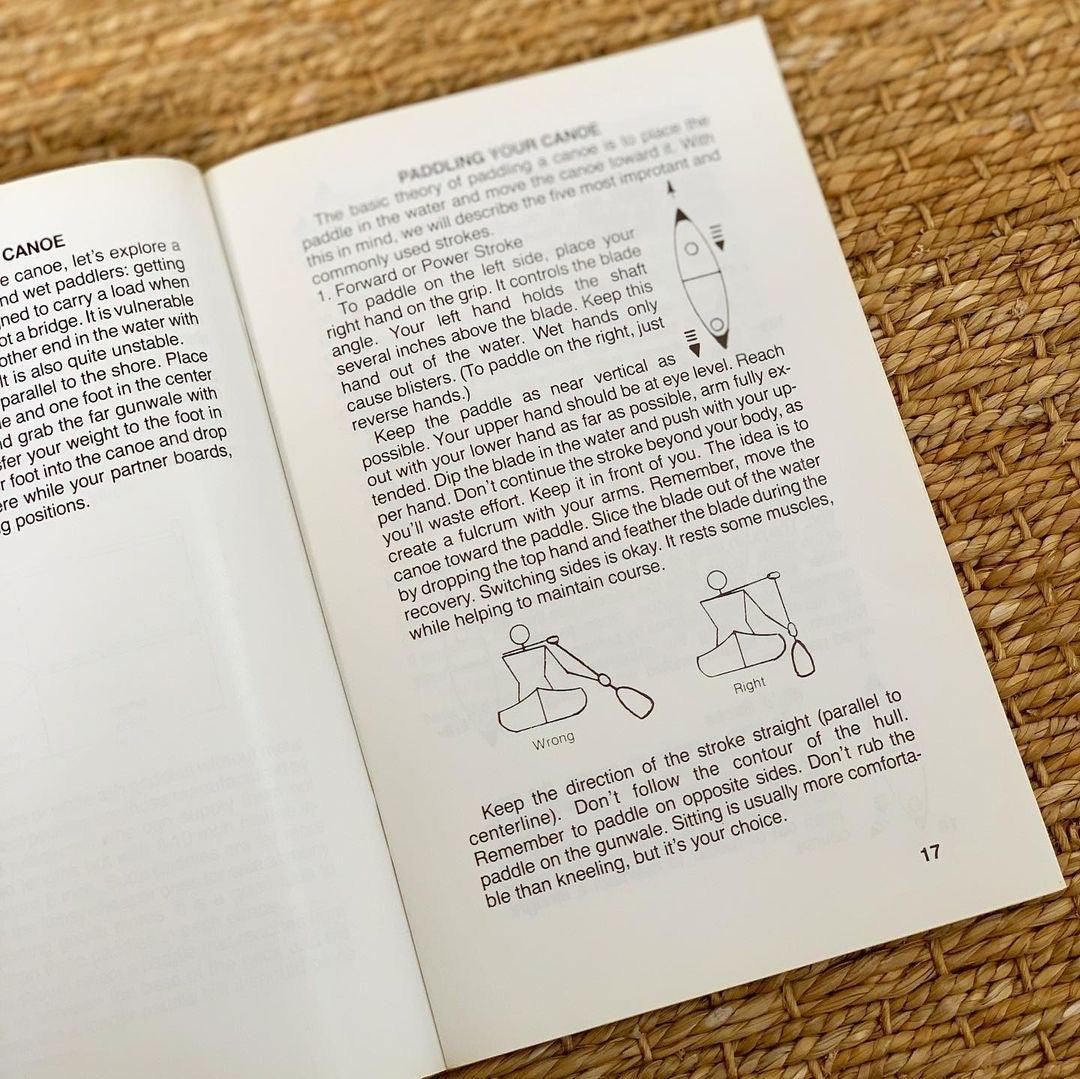 CANOE
e canoe, let's explore a
nd wet paddlers: getting
ned to carry a load when
ot a bridge. It is vulnerable
other end in the water with
It is also quite unstable.
parallel to the shore. Place
e and one foot in the center
d grab the far gunwale with
sfer your weight to the foot in
r foot into the canoe and drop
ere while your partner boards,
g positions.
PADDLING YOUR CANOE
The basic theory of paddling a canoe is to place the
paddle in the water and move the canoe toward it. With
this in mind, we will describe the five most improtant and
commonly used strokes.
1. Forward or Power Stroke
To paddle on the left side, place your
right hand on the grip. It controls the blade
angle. Your left hand holds the shaft
several inches above the blade. Keep this
hand out of the water. Wet hands only
cause blisters. (To paddle on the right, just
reverse hands.)
Keep the paddle as near vertical as
possible. Your upper hand should be at eye level. Reach
out with your lower hand as far as possible, arm fully ex-
tended. Dip the blade in the water and push with your up-
per hand. Don't continue the stroke beyond your body, as
you'll waste effort. Keep it in front of you. The idea is to
create a fulcrum with your arms. Remember, move the
canoe toward the paddle. Slice the blade out of the water
by dropping the top hand and feather the blade during the
recovery. Switching sides is okay. It rests some muscles,
while helping to maintain course.
Wrong
Right
Keep the direction of the stroke straight (parallel to
centerline). Don't follow the contour of the hull.
Remember to paddle on opposite sides. Don't rub the
paddle on the gunwale. Sitting is usually more comforta-
ble than kneeling, but it's your choice.
17